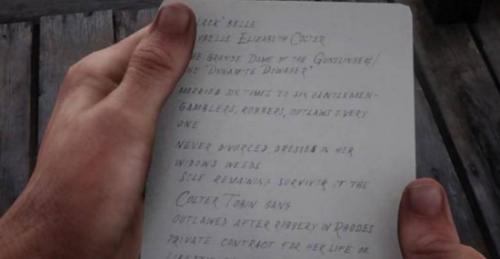 LACK" BELLE
BELLE ELIZABETH COLTER
GRANDE DAME OF THE GUNSLINGERS/
"DYNAMITE DOWAGER"
MARRIED SIX TIMES TO SIX GENTLEMEN-
GAMBLERS, ROBBERS, OUTLAWS EVERY
ONE
NEVER DIVORCED, DRESSED IN HER
WIDOWS WEEDS
SOLE REMAINING SURVIVOR OF THE
COLTER TOBIN GANG
OUTLAWED AFTER ROBBERY IN RHODES
PRIVATE CONTRACT FOR HER LIFE OR